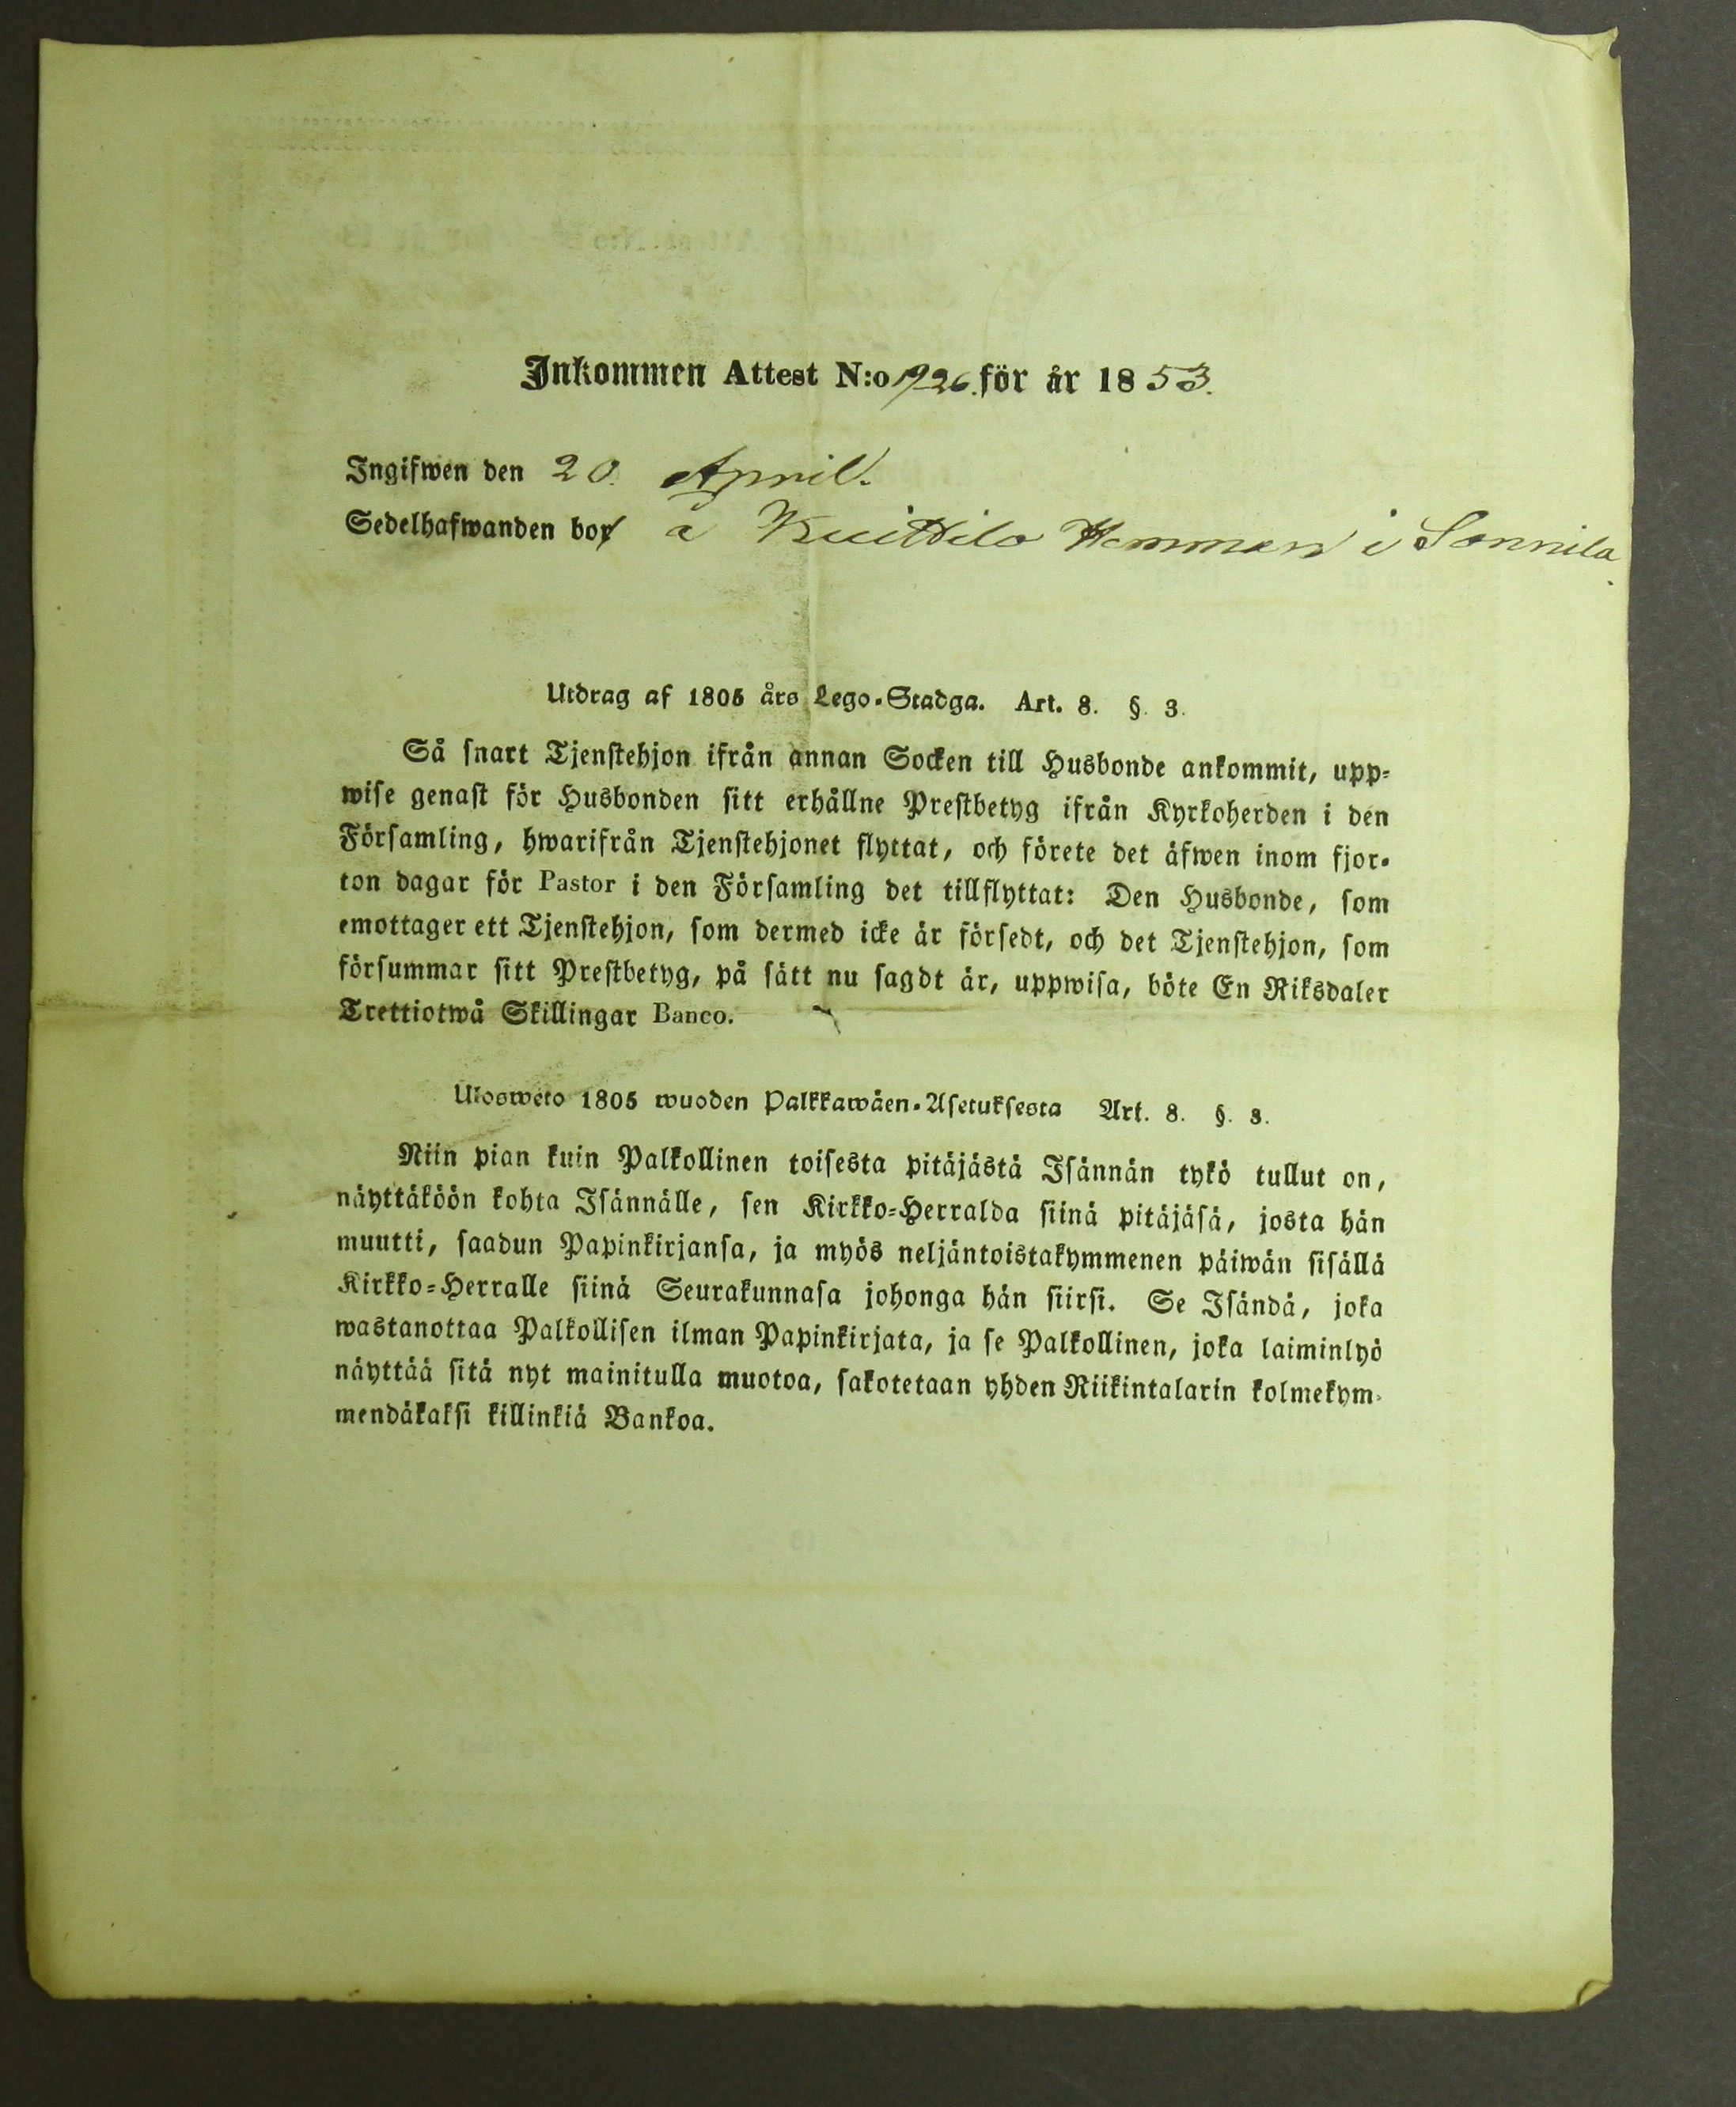 Inkommen Attest N:o 1926. för år 1853.
Ingifwen den 20. April.
Sedelhafwanden bor å Kuittilo Hemman i Sonnila
Utdrag af 1805 års Lego-Stadga. Art. 8. §. 3.
Så snart Tjenstehjon ifrån annan Socken till Husbonde ankommit, upp-
wise genast för Husbonden sitt erhållne Prestbetyg ifrån Kyrkoherden i den
Församling, hwarifrån Tjenstehjonet flyttat, och förete det äfwen inom fjor-
ton dagar för Pastor i den Församling det tillflyttat: Den Husbonde, som
emottager ett Tjenstehjon, som dermed icke är försedt, och det Tjenstehjon, som
försummar sitt Prestbetyg, på sätt nu sagdt är, uppwisa, böte En Riksdaler
Trettiotwå Skillingar Banco.
Ulosweto 1805 wuoden Palkkawäen-Asetuksesta Art. 8. §. 3.
Niin pian kuin Palkollinen toisesta pitäjästä Isännän tykö tullut on,
näyttäköön kohta Isännälle, sen Kirkko-Herralda siinä pitäjäsä, josta hän
muutti, saadun Papinkirjansa, ja myös neljäntoistakymmenen päiwän sisällä
Kirkko-Herralle siinä Seurakunnasa johonga hän siirsi. Se Isändä, joka
wastanottaa Palkollisen ilman Papinkirjata, ja se Palkollinen, joka laiminlyö
näyttää sitä nyt mainitulla muotoa, sakotetaan yhden Riikintalarin kolmekym-
mendäkaksi killinkiä Bankoa.